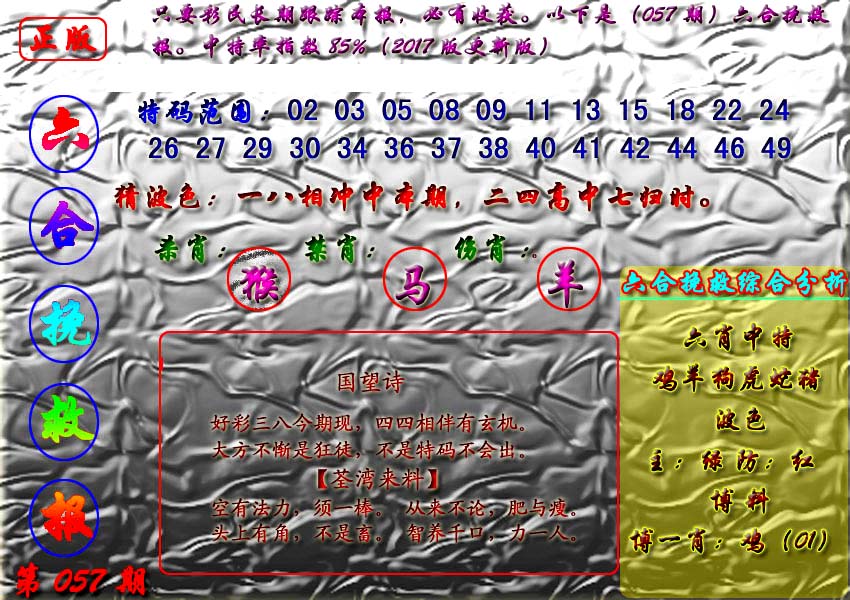 正版
只要彩民长期跟踪本报，必有收获。以下是（057期）六合挽救
报。中特率指数85%（2017版更新版）
六合挽救报
第057期
特码范围：02 03 05 08 09 11 13 15 18 22 24
26 27 29 30 34 36 37 38 40 41 42 44 46 49
猜波色：一八相冲中本期，二四高中七归时。
杀肖：猴 禁肖：马 伤肖：。羊
国望诗
好彩三八今期现，四四相伴有玄机。
大方不惭是狂徒，不是特码不会出。
【荃湾来料】
空有法力，须一棒。 从来不论，肥与瘦。
头上有角，不是畜。 智养千口，力一人。
六合挽救综合分析
六肖中特
鸡羊狗虎蛇猪
波色
主：绿防：红
博料
博一肖：鸡（01）